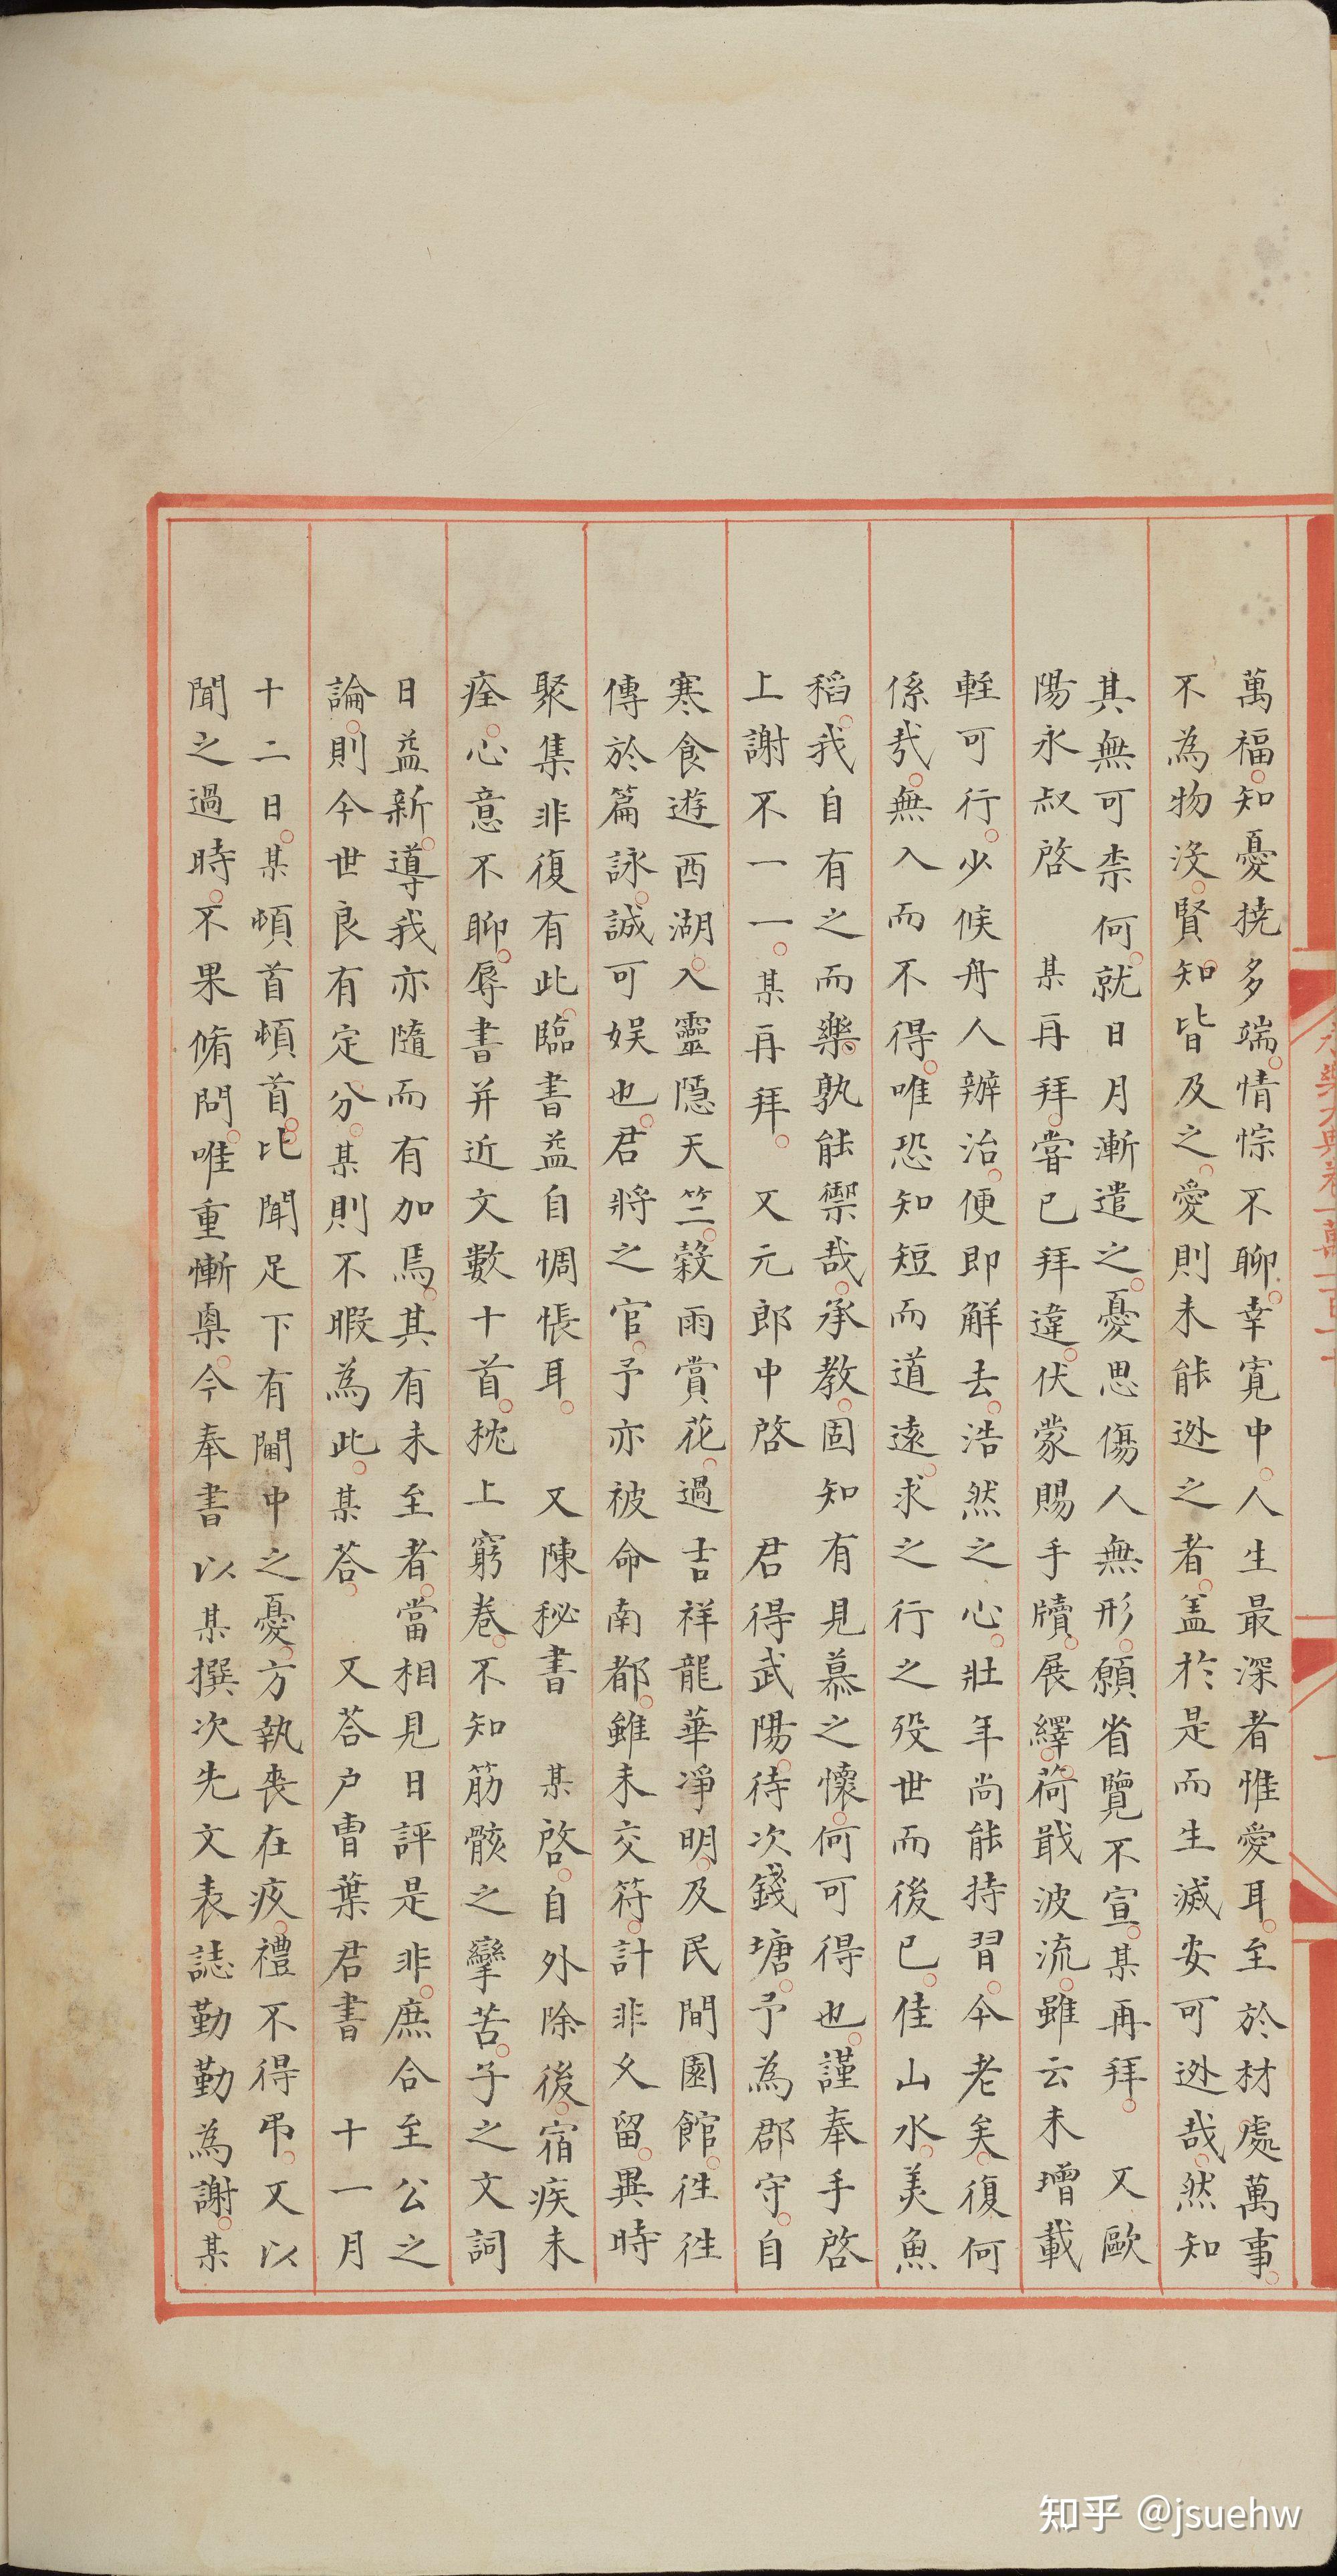 萬福知憂撓多端情悰不聊幸寬中人生最深者惟愛耳至於材處萬事
不為物沒賢知皆及之愛則未能迯之者盖於是而生滅安可迯哉然知
其無可柰何就日月漸遣之憂思傷人無形願省覽不宣某再拜 又歐
陽永叔啓 某再拜嘗已拜違伏蒙賜手牘展繹荷戢波流雖云未增載
輊可行少候舟人辦治便即解去浩然之心壯年尚能持習今老矣復何
係㢤無入而不得唯恐知短而道遠求之行之歿世而後已佳山水美魚
稻我自有之而樂孰能禦哉承教固知有見慕之懷何可得也謹奉手啓
上謝不一一某再拜 又元郎中啓 君得武陽待次錢塘予為郡守自
寒食遊西湖入靈隠天竺穀雨賞花過吉祥龍華凈明及民間園館徃徃
傳於篇詠誠可娱也君將之官予亦被命南都雖未交符計非久留異時
聚集非復有此臨書益自惆悵耳 又陳秘書 某啓自外除後宿疾未
痊心意不聊辱書并近文數十首枕上窮卷不知筋骸之攣苦子之文詞
日益新導我亦隨而有加焉其有未至者當相見日評是非庶合至公之
論則今世良有定分某則不暇為此某荅 又荅户曹葉君書 十一月
十二日某頓首頓首比聞足下有閫中之憂方執喪在疚禮不得弔又以
聞之過時不果脩問唯重慚臬今奉書以某撰次先文表誌勤勤為謝某
永樂大典卷一萬一百十
一
知乎 @jsuehw